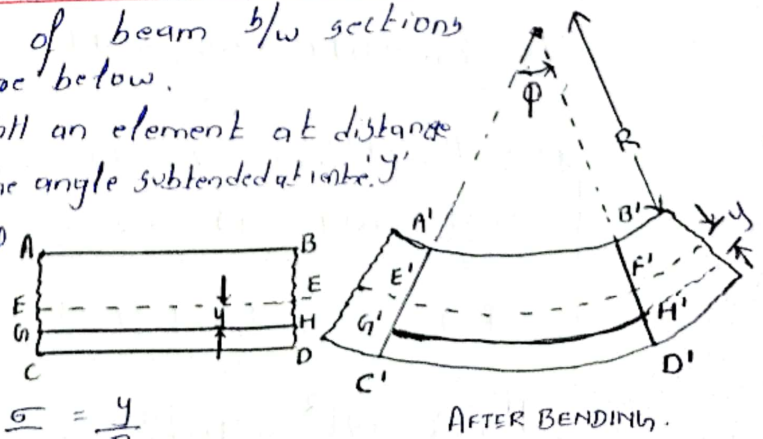 of beam b/w sections
below.
an element at distance
angle subtended at 'y'
A B
E E
y
G H
C D
σ = y
φ
R
A' B'
y
E' F'
G' H'
C' D'
AFTER BENDING.